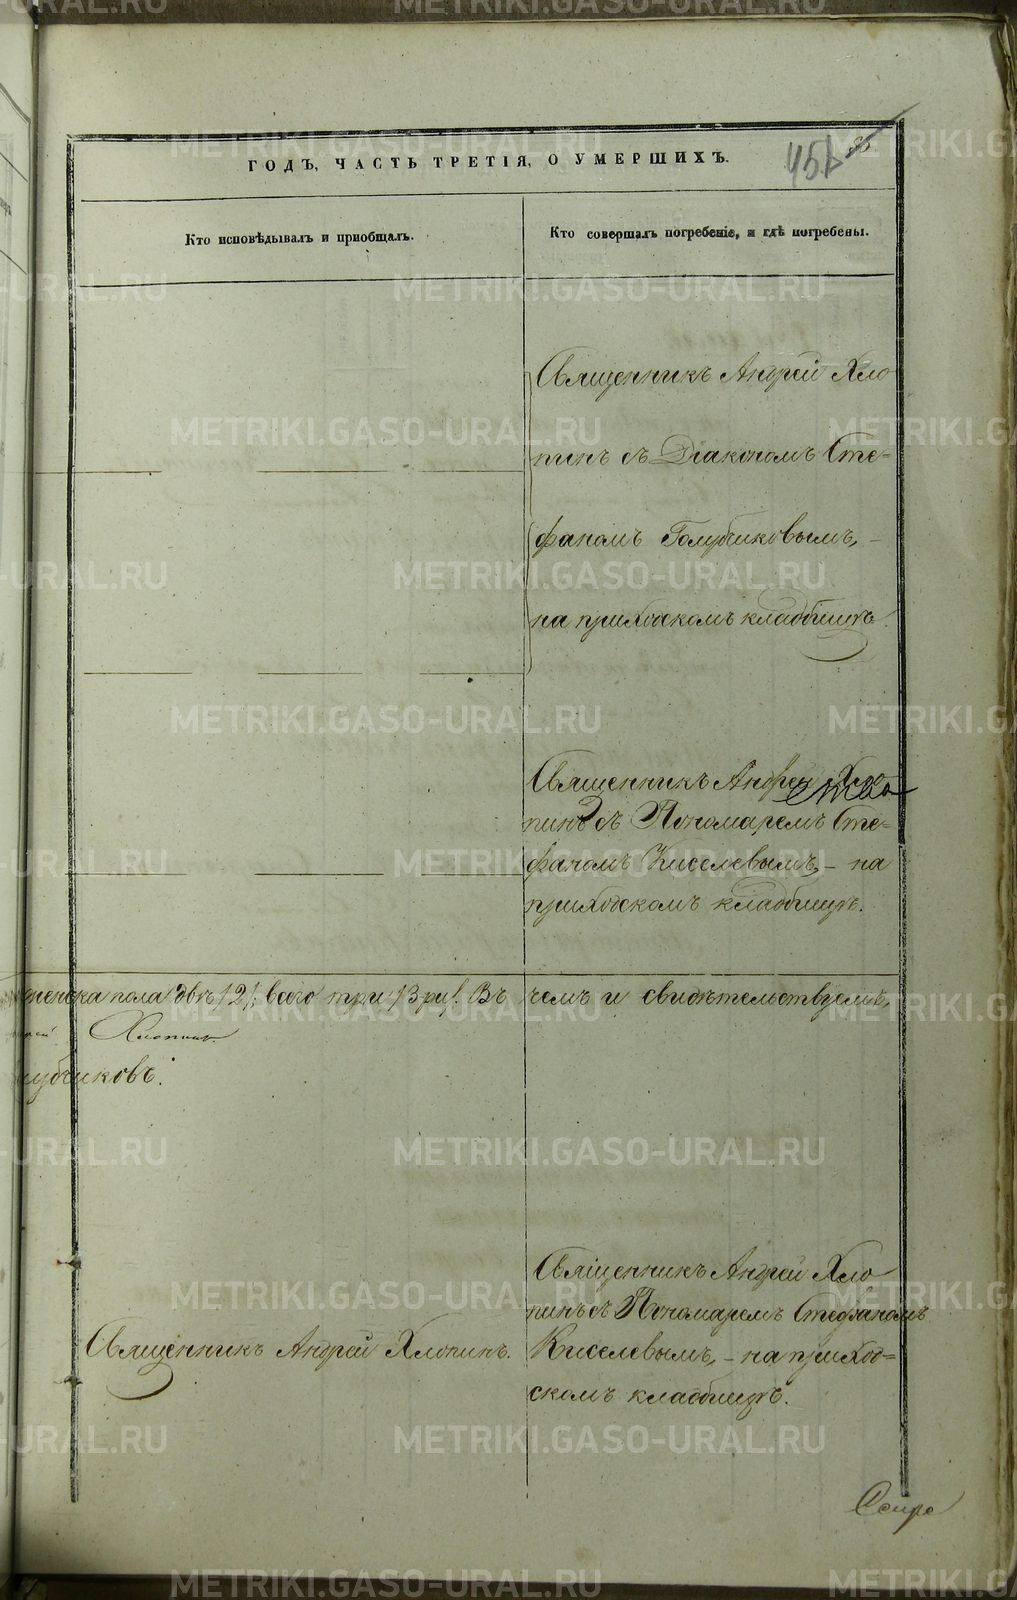 ГОДЪ, ЧАСТЬ ТРЕТІЯ, О УМЕРШИХЪ.
Кто исповѣдывалъ и пріобщалъ.
Кто совершалъ погребеніе, и гдѣ погребены.
Священникъ Андрей Хло
пинъ съ Діакономъ Сте-
фаномъ Голубчиковымъ, -
на приходскомъ кладбищѣ.
Священникъ Андрей Хло
пинъ съ Пономаремъ Сте-
фаномъ Киселевымъ, - на
приходскомъ кладбищѣ.
женска пола двѣ /2/, всего три /3 /. Въ чемъ и свидѣтельствуемъ,
Хлопинъ
лубчиковъ.
Священникъ Андрей Хлопинъ.
Священникъ Андрей Хло
пинъ съ Пономаремъ Стефаномъ
Киселевымъ, - на приход=
скомъ кладбищѣ.
METRIKI.GASO-URAL.RU